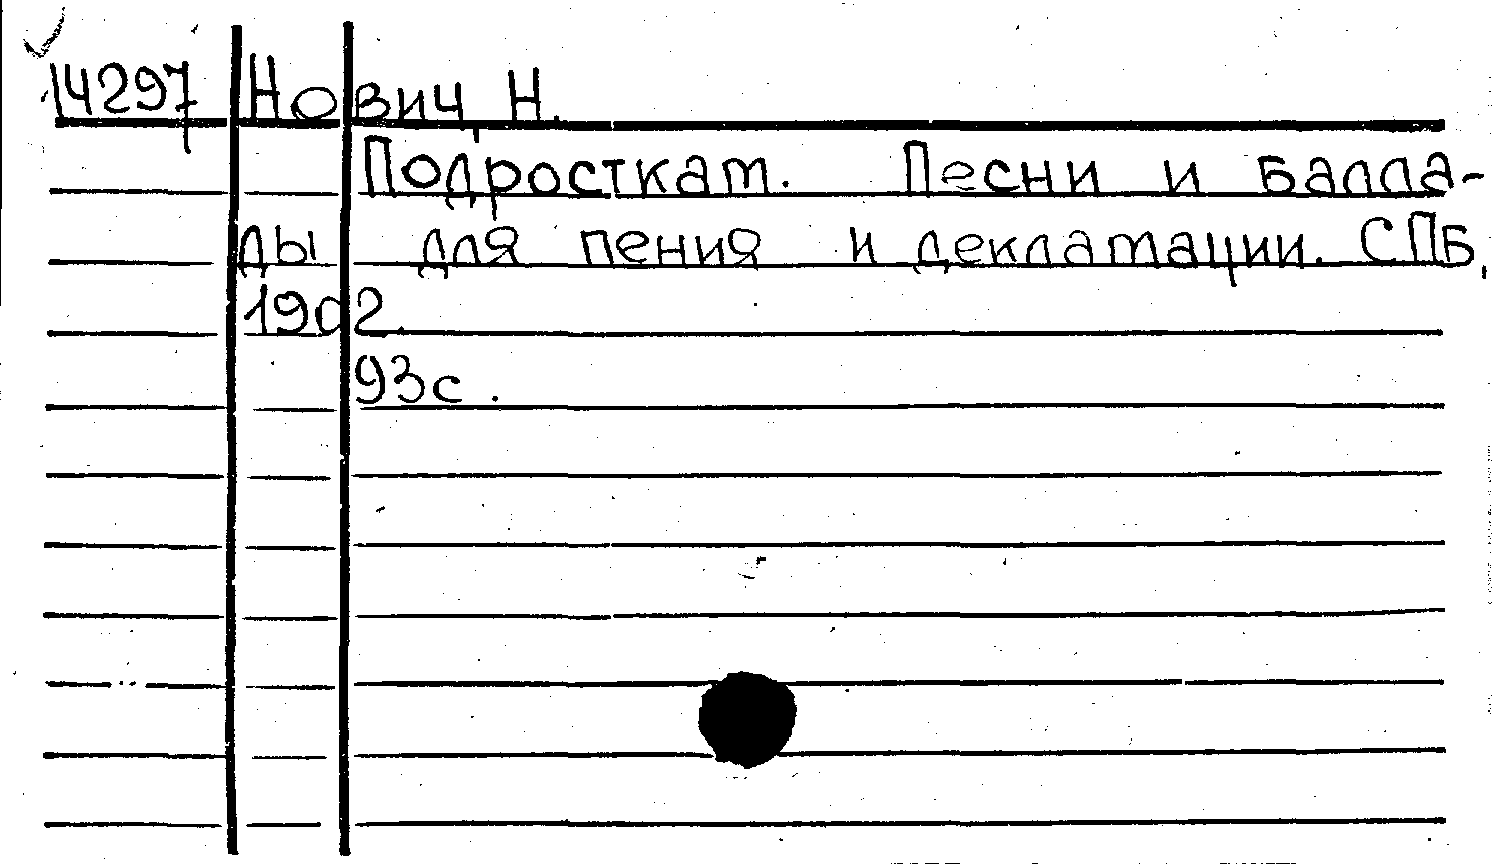 14297 Нович, Н.
Подросткам. Песни и балла-
ды для пения и декламации. СПБ,
1902.
93с.